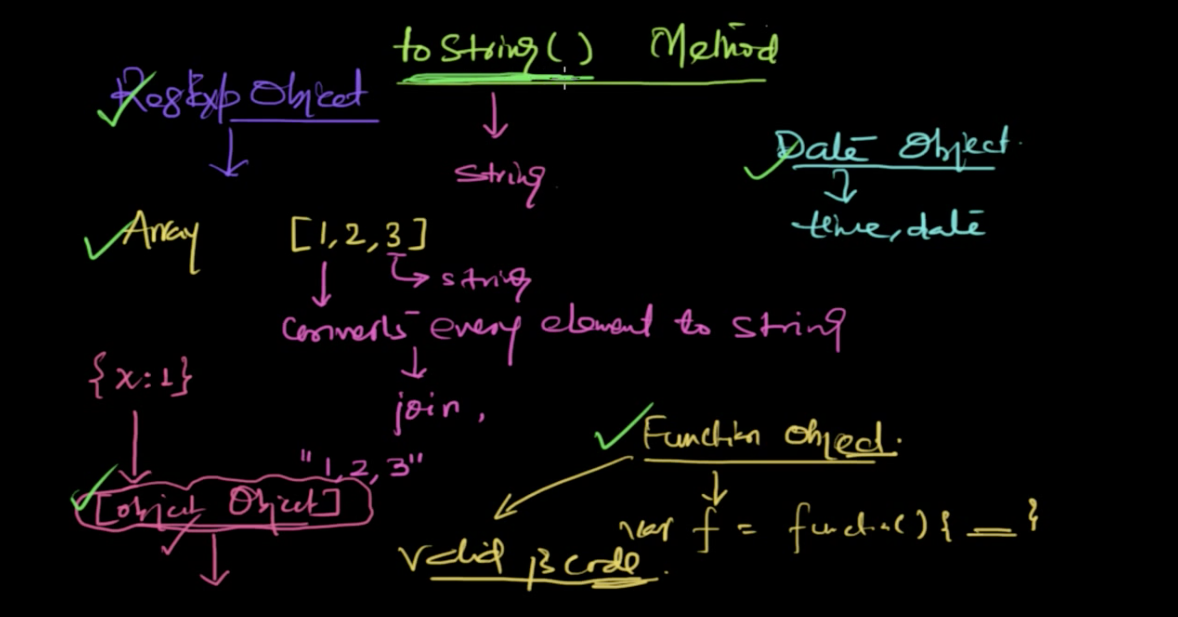 toString() Method
RegExp Object
string
Date Object.
time, date
Array [1,2,3]
string
converts every element to string
{x:1}
join ,
"1,2,3"
Function object.
[object Object]
var f = function() { __ }
Valid JS code.